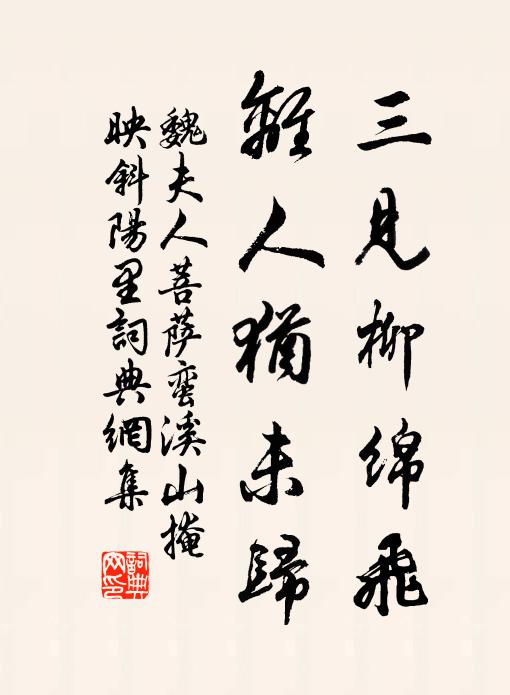 三見柳綿飛
離人猶未歸
魏夫人菩薩蠻溪山掩
映斜陽里詞典網集
詞典
网印